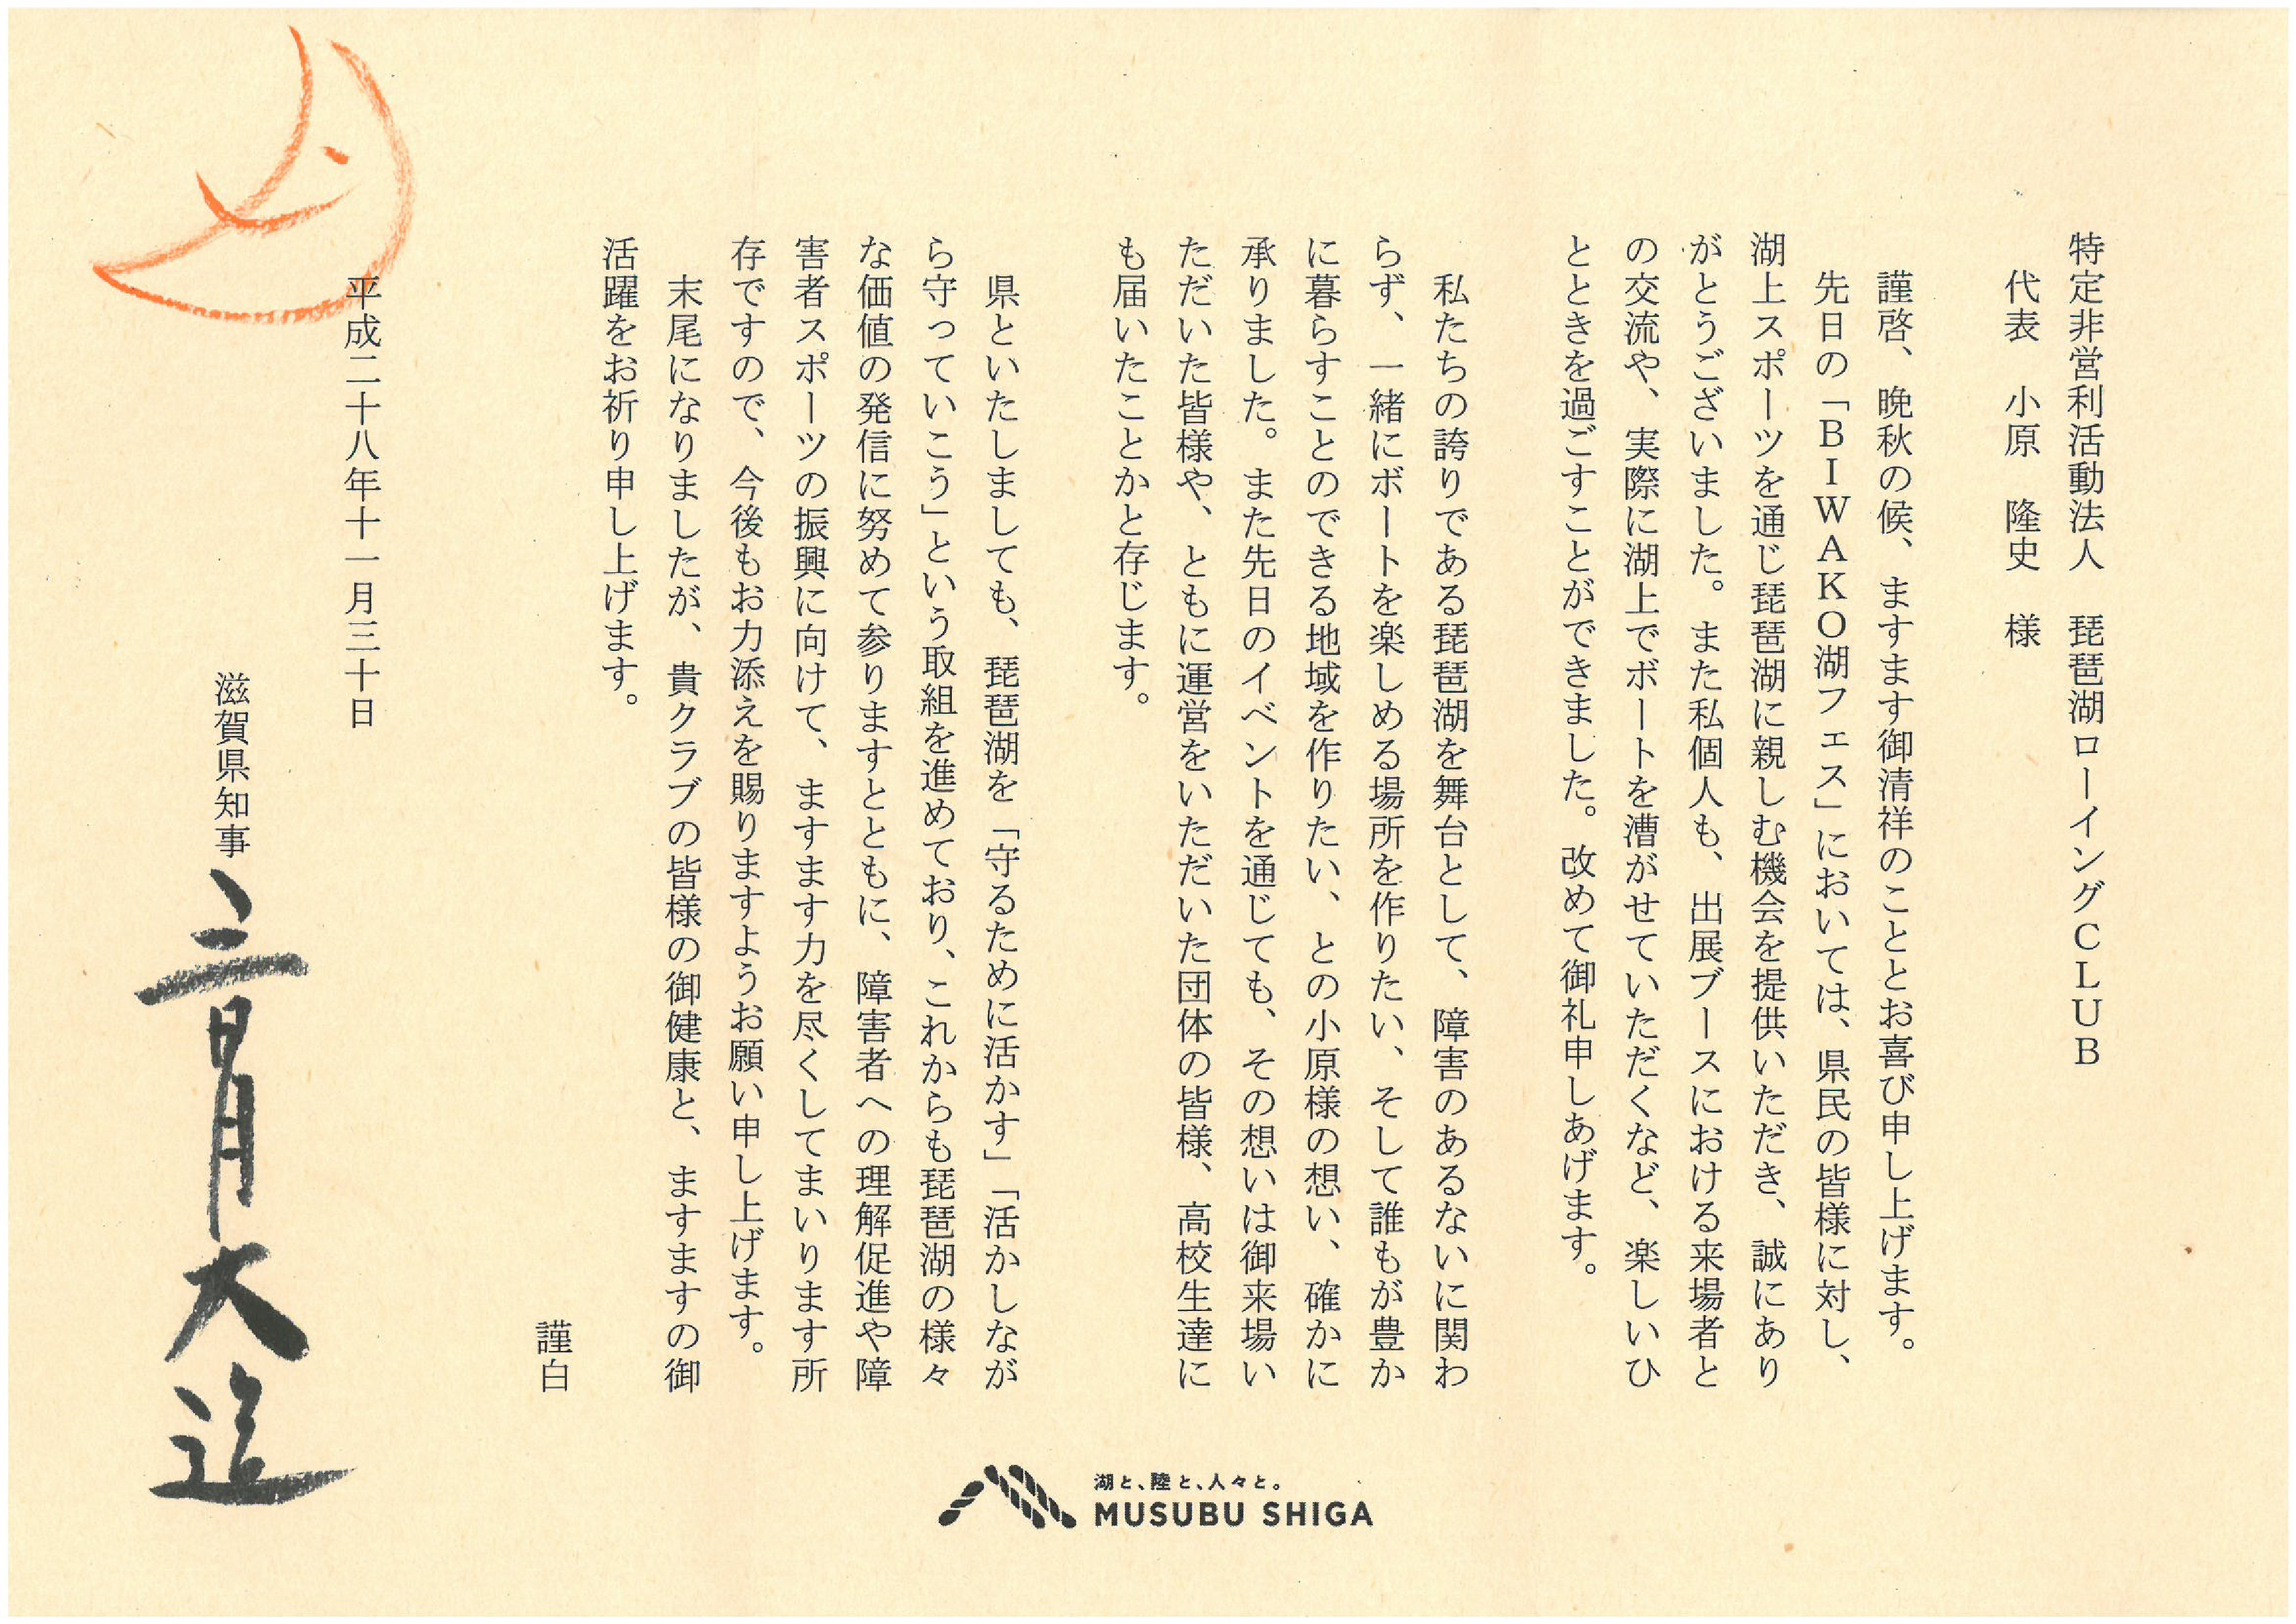 特定非営利活動法人　琵琶湖ローイングＣＬＵＢ
代表　小原　隆史　様
謹啓、晩秋の候、ますます御清祥のこととお喜び申し上げます。
先日の「ＢＩＷＡＫＯ湖フェス」においては、県民の皆様に対し、
湖上スポーツを通じ琵琶湖に親しむ機会を提供いただき、誠にあり
がとうございました。また私個人も、出展ブースにおける来場者と
の交流や、実際に湖上でボートを漕がせていただくなど、楽しいひ
とときを過ごすことができました。改めて御礼申しあげます。
私たちの誇りである琵琶湖を舞台として、障害のあるないに関わ
らず、一緒にボートを楽しめる場所を作りたい、そして誰もが豊か
に暮らすことのできる地域を作りたい、との小原様の想い、確かに
承りました。また先日のイベントを通じても、その想いは御来場い
ただいた皆様や、ともに運営をいただいた団体の皆様、高校生達に
も届いたことかと存じます。
県といたしましても、琵琶湖を「守るために活かす」「活かしなが
ら守っていこう」という取組を進めており、これからも琵琶湖の様々
な価値の発信に努めて参りますとともに、障害者への理解促進や障
害者スポーツの振興に向けて、ますます力を尽くしてまいります所
存ですので、今後もお力添えを賜りますようお願い申し上げます。
末尾になりましたが、貴クラブの皆様の御健康と、ますますの御
活躍をお祈り申し上げます。
謹白
平成二十八年十一月三十日
滋賀県知事 三日月大造
湖と、陸と、人々と。
MUSUBU SHIGA